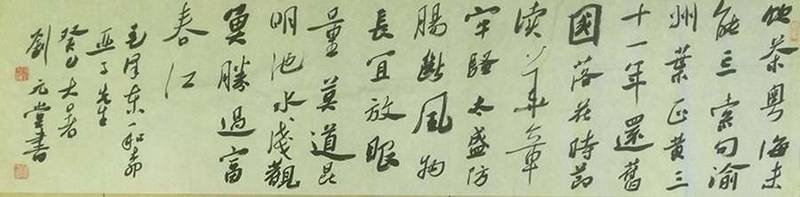 饮茶粤海未
能忘索句渝
州葉正黄三
十一年還舊
國落花時節
读華章
牢騷太盛防
腸断風物
長宜放眼
量莫道昆
明池水浅觀
魚勝過富
春江
毛泽东和柳
亚子先生
癸巳大暑
劉元堂書